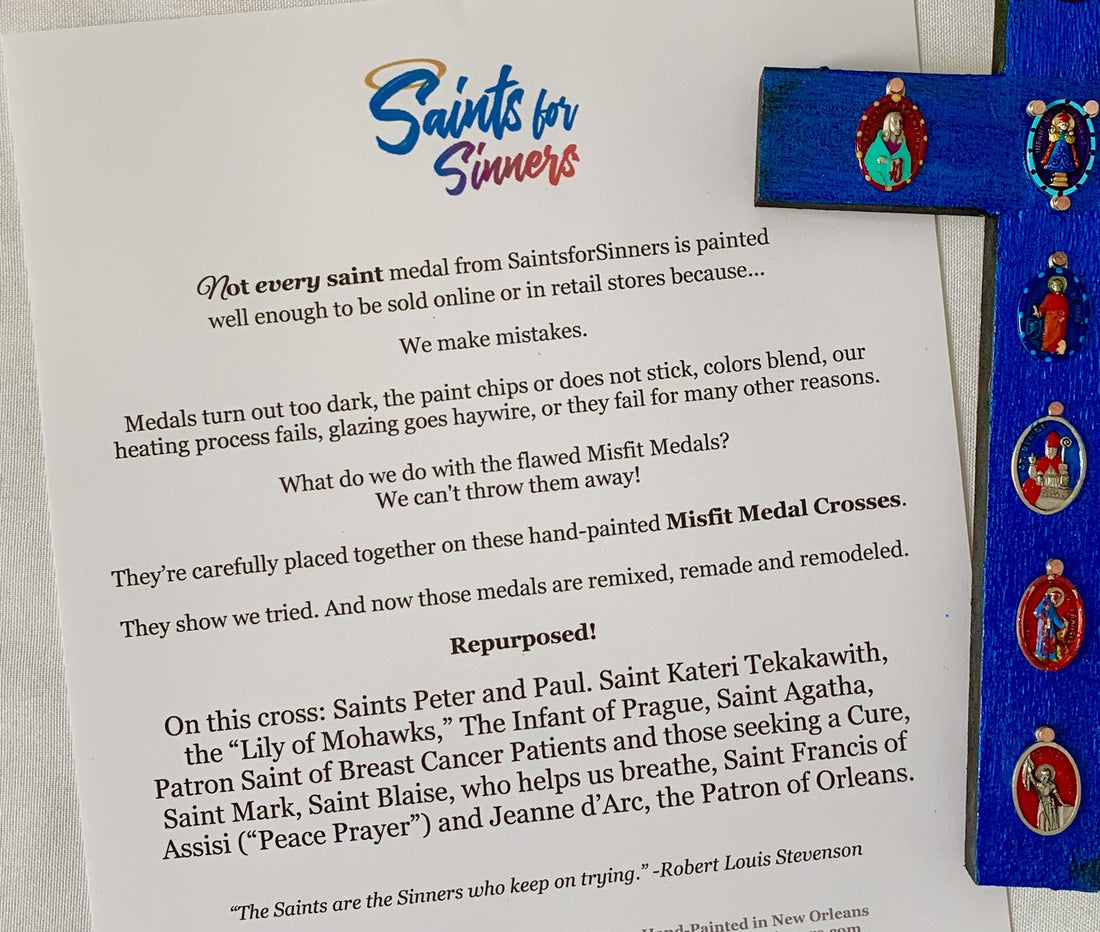 Saints for
Sinners
Not every saint medal from SaintsforSinners is painted
well enough to be sold online or in retail stores because...
We make mistakes.
Medals turn out too dark, the paint chips or does not stick, colors blend, our
heating process fails, glazing goes haywire, or they fail for many other reasons.
What do we do with the flawed Misfit Medals?
We can't throw them away!
They’re carefully placed together on these hand-painted Misfit Medal Crosses.
They show we tried. And now those medals are remixed, remade and remodeled.
Repurposed!
On this cross: Saints Peter and Paul. Saint Kateri Tekakawith,
the “Lily of Mohawks,” The Infant of Prague, Saint Agatha,
Patron Saint of Breast Cancer Patients and those seeking a Cure,
Saint Mark, Saint Blaise, who helps us breathe, Saint Francis of
Assisi (“Peace Prayer”) and Jeanne d’Arc, the Patron of Orleans.
“The Saints are the Sinners who keep on trying.” -Robert Louis Stevenson
Hand-Painted in New Orleans